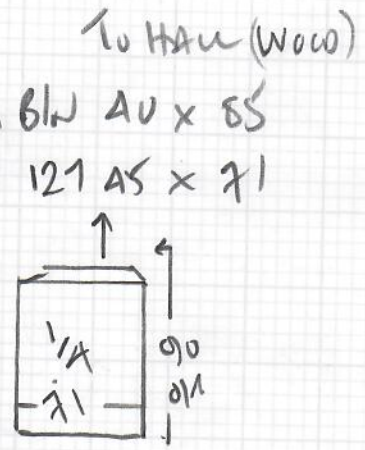 To HALL (WOOD)
BIN 40 x 85
121 45 x 71
1/4
71
90
0/1